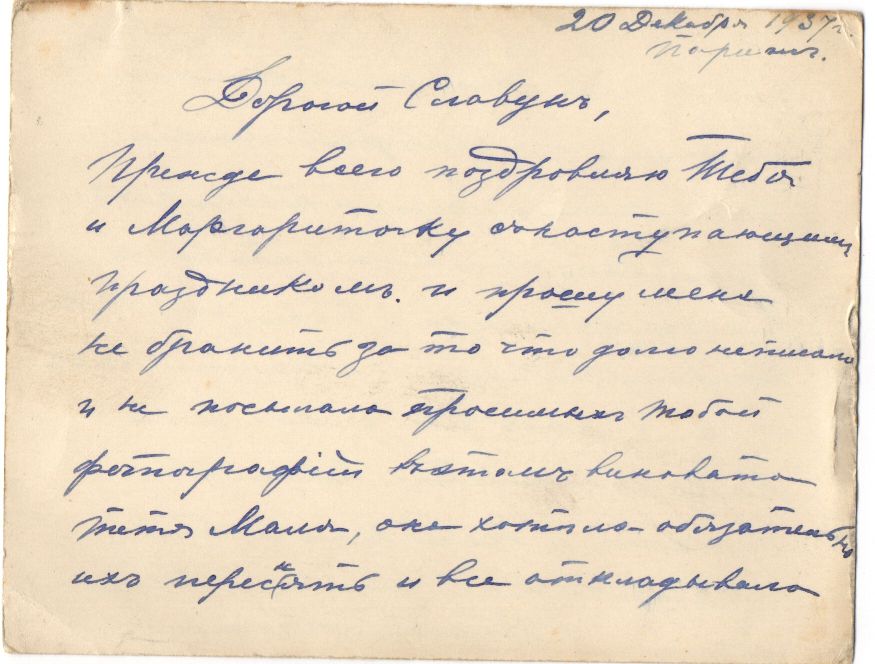 20 Декабря 1937 г.
Париж.
Дорогой Славунъ,
Прежде всего поздровляю Тебя
и Маргариточку снаступающимъ
праздникомъ. и прошу меня
не бранить за то что долго неписала
и не посылала просимыхъ тобой
фотографій въэтомъ виновата
тетя Маля, она хотѣла обязательно
ихъ переснять и все откладывала